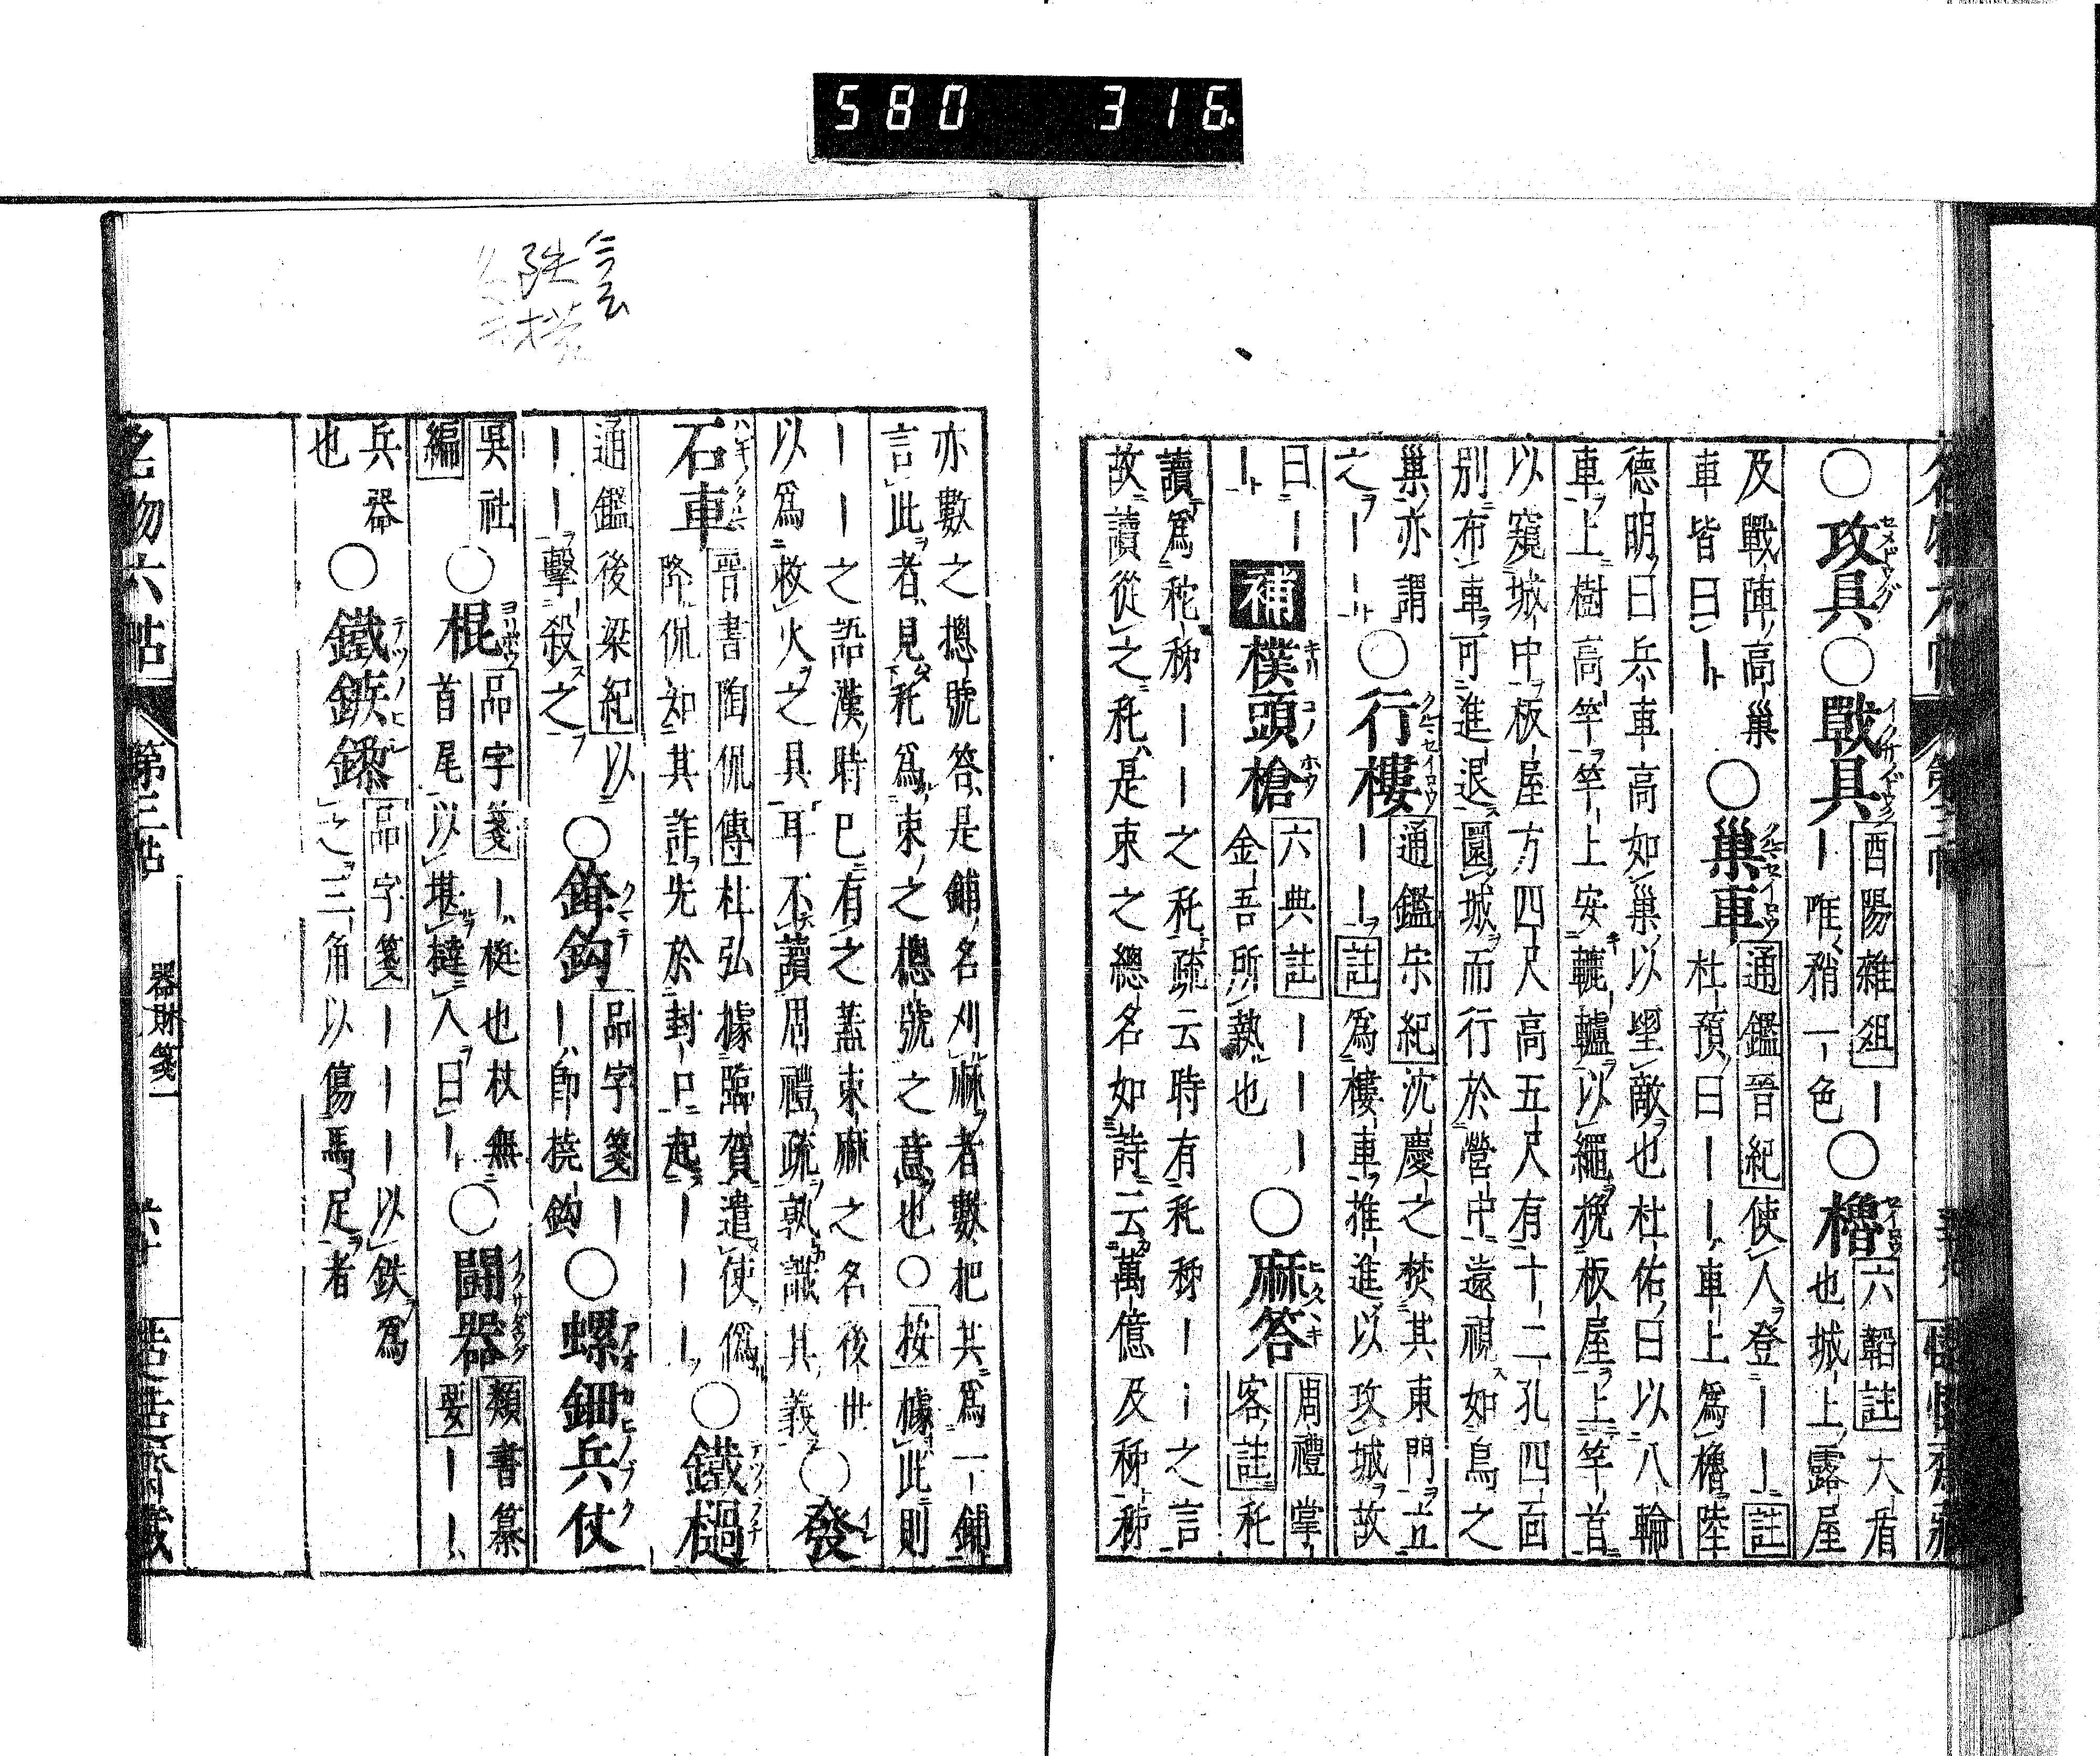 580 316
○攻具○戰具 酉陽雜俎 ー
ー唯矟一色
○櫓 六韜註 大盾
也城上露屋
及戰陣高巢
車皆曰ー
○巢車 通鑑晉紀 使人登ーー註
杜預曰ーー車上爲櫓陸
德明曰兵車高如巢以望敵也杜佑曰以八輪
車上樹高竿竿上安轆轤以繩挽板屋上竿首
以窺城中板屋方四尺高五尺有十二孔四面
別布車可進退圜城而行於營中遠視如鳥之
巢亦謂
之ーー
○行樓 通鑑宋紀 沈慶之焚其東門立
ーー註爲樓車推進以攻城故
曰ー
ー
補 樸頭槍 六典註 ーーー
金吾所執也
○麻荅 周禮掌
客註 秅
讀爲秅秭ーー之秅疏云時有秅秭ーー之言
故讀從之秅是束之總名如詩云萬億及秭秭
亦數之摠號荅是鋪名刈麻者數把共爲一鋪
言此者見秅爲束之摠號之意也○按據此則
ーー之語漢時已有之蓋束麻之名後世
以爲救火之具耳不讀周禮疏孰識其義
○發
石車 晉書陶侃傳 杜弘據臨賀遣使僞
降侃知其詐先於封口起ーーー
○鐵檛
通鑑後梁紀 以
ーー擊殺之
○鋒鈎 品字箋 ー
ー卽撓鈎
○螺鈿兵仗
吳社
編
○棍 品字箋 ー梃也杖無
首尾以堪撻人曰ー
○鬪器 類書纂
要 ーー
兵器
也
○鐵鏃鏫 品字箋 ーーー以鉄爲
之三角以傷馬足者
名物六帖 第三帖 器財箋一 六十